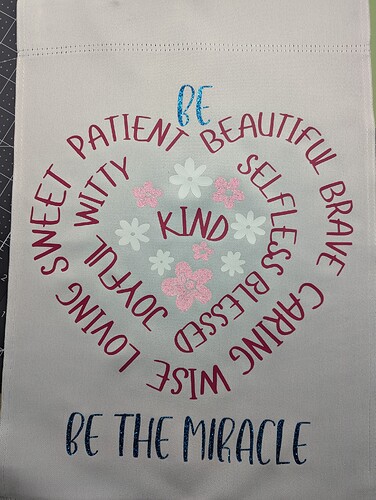 BE
PATIENT BEAUTIFUL BRAVE CARING WISE LOVING SWEET
WITTY SELFLESS BLESSED JOYFUL
KIND
BE THE MIRACLE